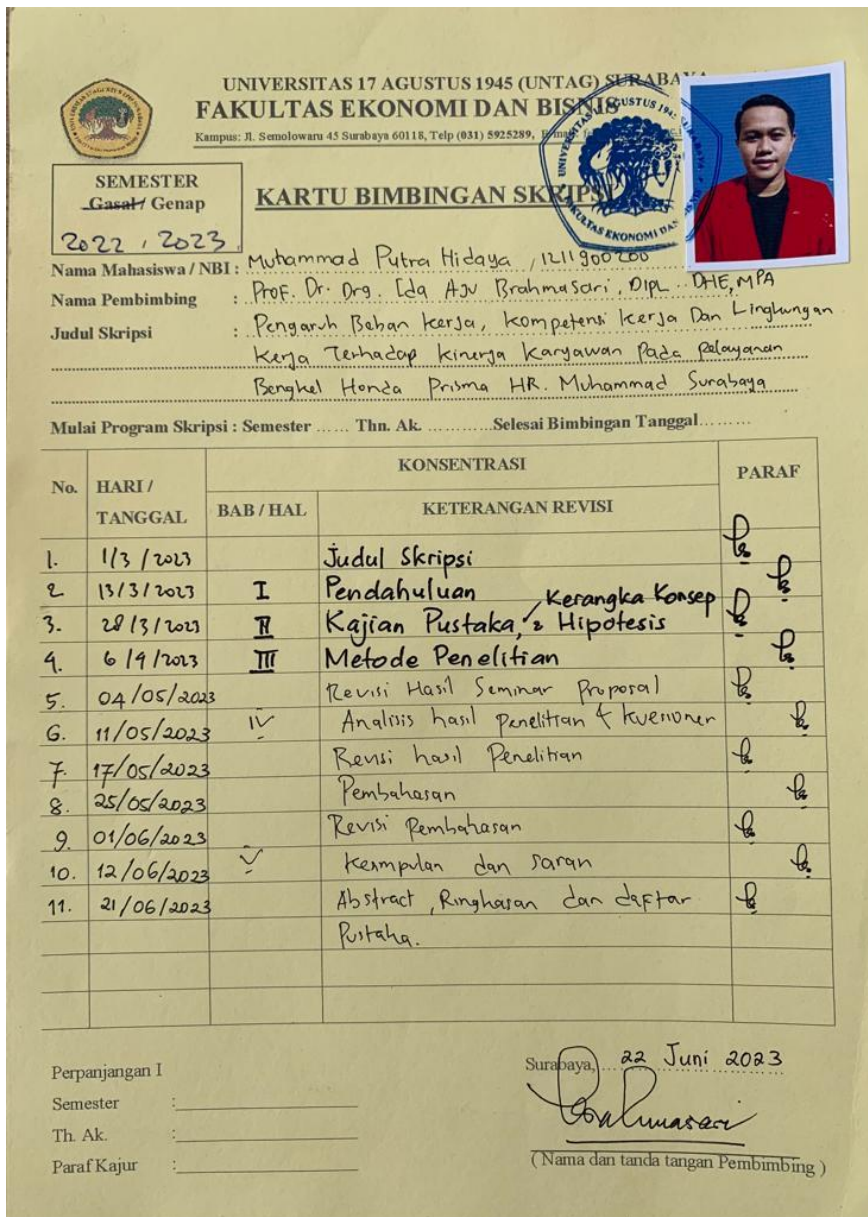 UNIVERSITAS 17 AGUSTUS 1945 (UNTAG) SURABAYA
FAKULTAS EKONOMI DAN BISNIS
Kampus: Jl. Semolowaru 45 Surabaya 60118, Telp (031) 5925289,
UNIVERSITAS 17 AGUSTUS 1945 SURABAYA
FAKULTAS EKONOMI DAN BISNIS
SEMESTER
Gasal / Genap
2022 , 2023
KARTU BIMBINGAN SKRIPSI
Nama Mahasiswa / NBI : Muhammad Putra Hidaya , 1211900200
Nama Pembimbing : Prof. Dr. Drg. Ida Aju Brahmasari, Dipl. DHE, MPA
Judul Skripsi : Pengaruh Beban Kerja, Kompetensi Kerja Dan Lingkungan
Kerja Terhadap Kinerja Karyawan Pada Pelayanan
Bengkel Honda Prisma HR. Muhammad Surabaya
Mulai Program Skripsi : Semester ...... Thn. Ak. ............Selesai Bimbingan Tanggal.........
No. HARI / TANGGAL KONSENTRASI PARAF
BAB / HAL KETERANGAN REVISI
1. 1/3/2023 Judul Skripsi
2 13/3/2023 I Pendahuluan
3. 28/3/2023 II Kajian Pustaka, Kerangka Konsep & Hipotesis
4. 6/4/2023 III Metode Penelitian
5. 04/05/2023 Revisi Hasil Seminar Proposal
6. 11/05/2023 IV Analisis hasil Penelitian & kuesioner
7. 17/05/2023 Revisi hasil Penelitian
8. 25/05/2023 Pembahasan
9. 01/06/2023 Revisi Pembahasan
10. 12/06/2023 V Kesimpulan dan saran
11. 21/06/2023 Abstract, Ringkasan dan daftar
Pustaka.
Perpanjangan I
Semester :
Th. Ak. :
Paraf Kajur :
Surabaya, 22 Juni 2023
Brahmasari
( Nama dan tanda tangan Pembimbing )